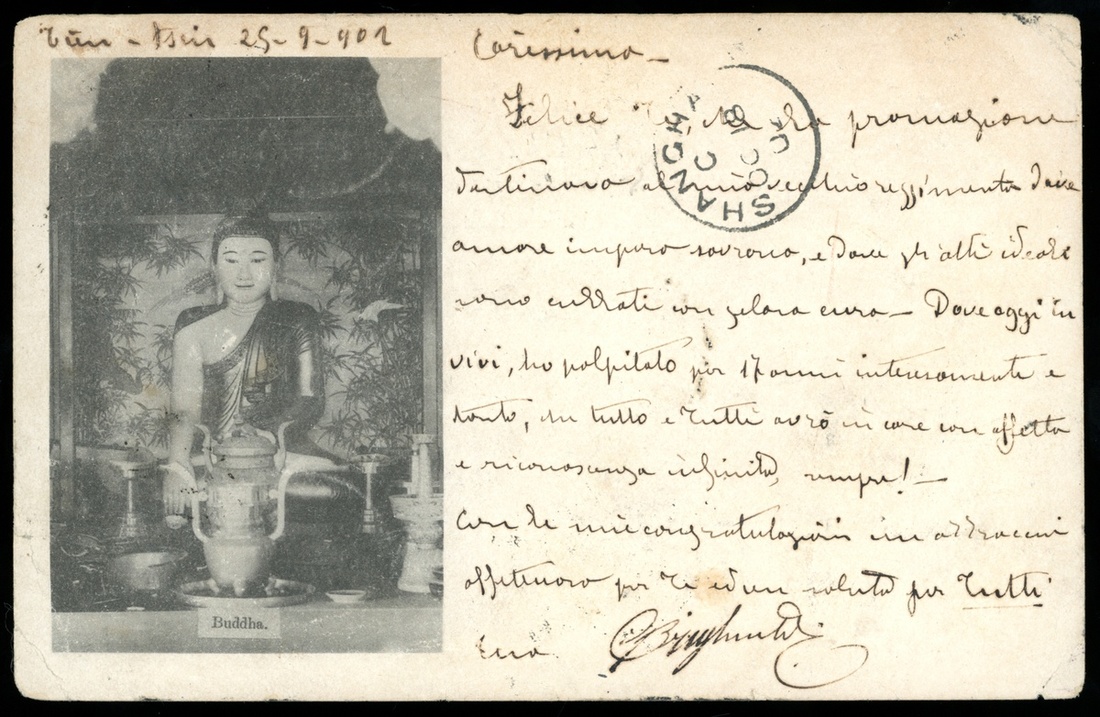 Tien-Tsin 25-9-901
Carissimo -
Felice Te, che la promozione
destinava al mio vecchio reggimento dove
amore impera sovrano, e dove gli alti ideali
sono con gelosa cura - Dove oggi tu
vivi, ho palpitato per 17 anni intensamente e
tanto, tutto e tutti avrò in core con affetto
e riconoscenza infinita, sempre! -
Con le mie congratulazioni un abbraccio
affettuoso per Te ed un saluto per Tutti
Tuo
SHANGHAI
OC
Buddha.